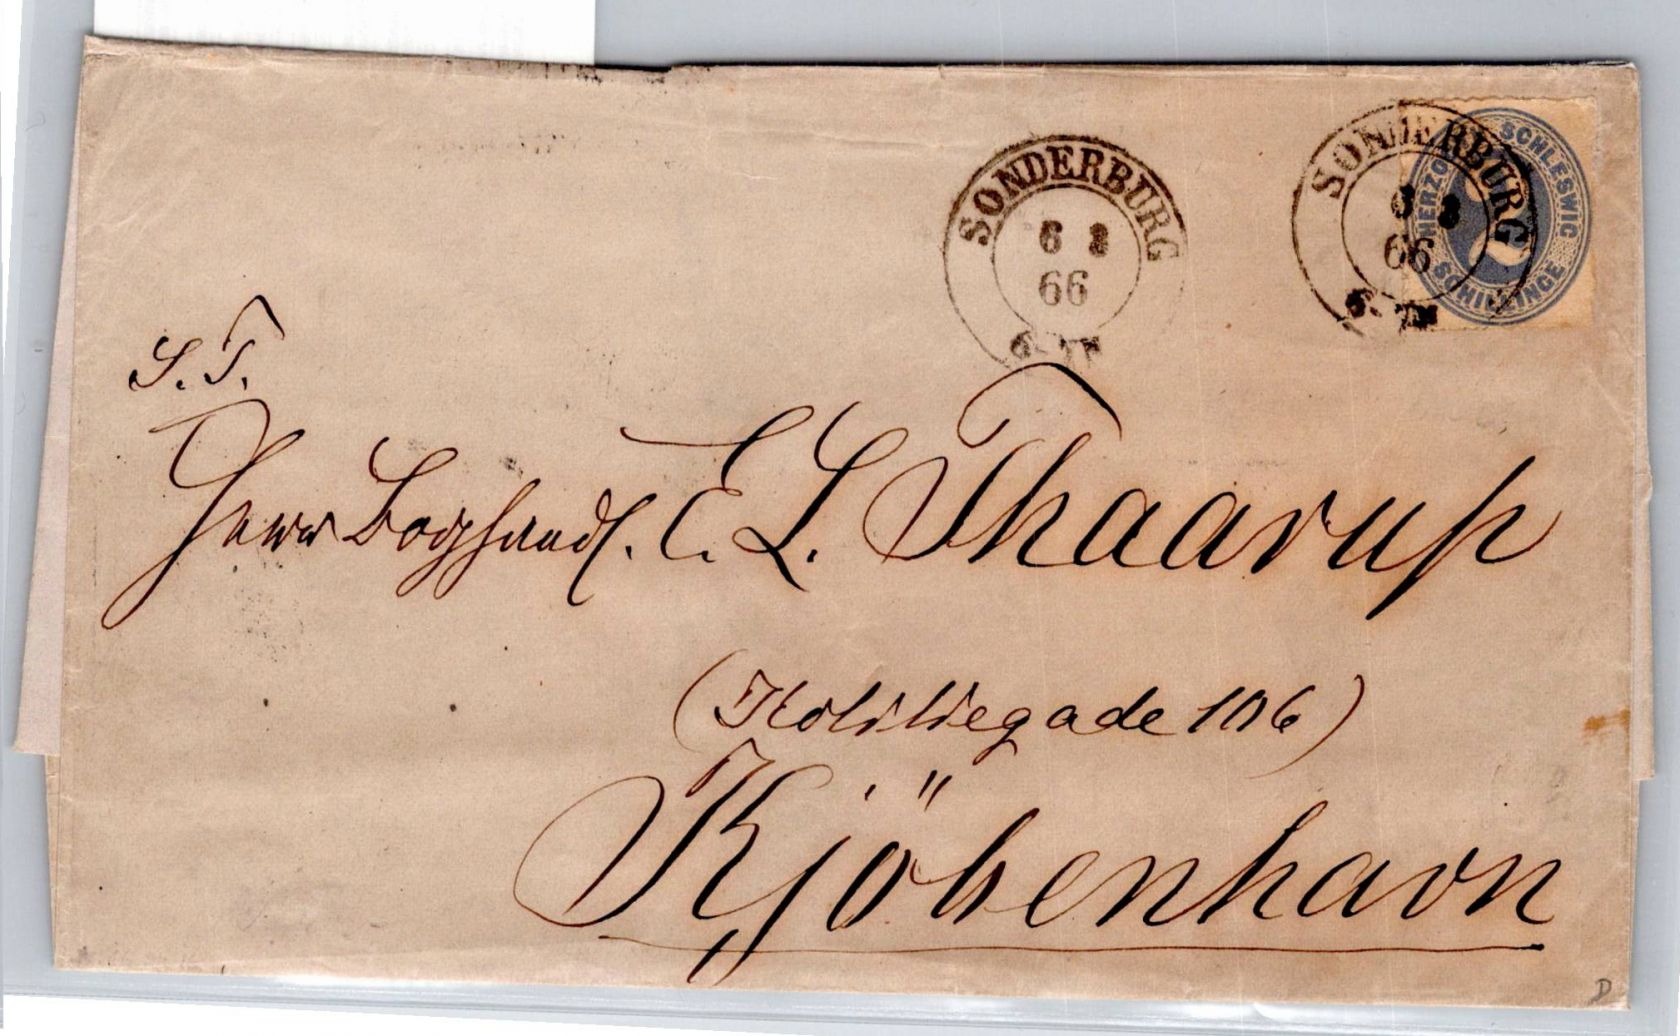 SONDERBURG
6 3
66
SONDERBURG
6 3
66
HERZOG SCHLESWIG
SCHILLINGE
S. T.
Herr Boghandl. E. L. Thaarup
106)
Kjöbenhavn
D